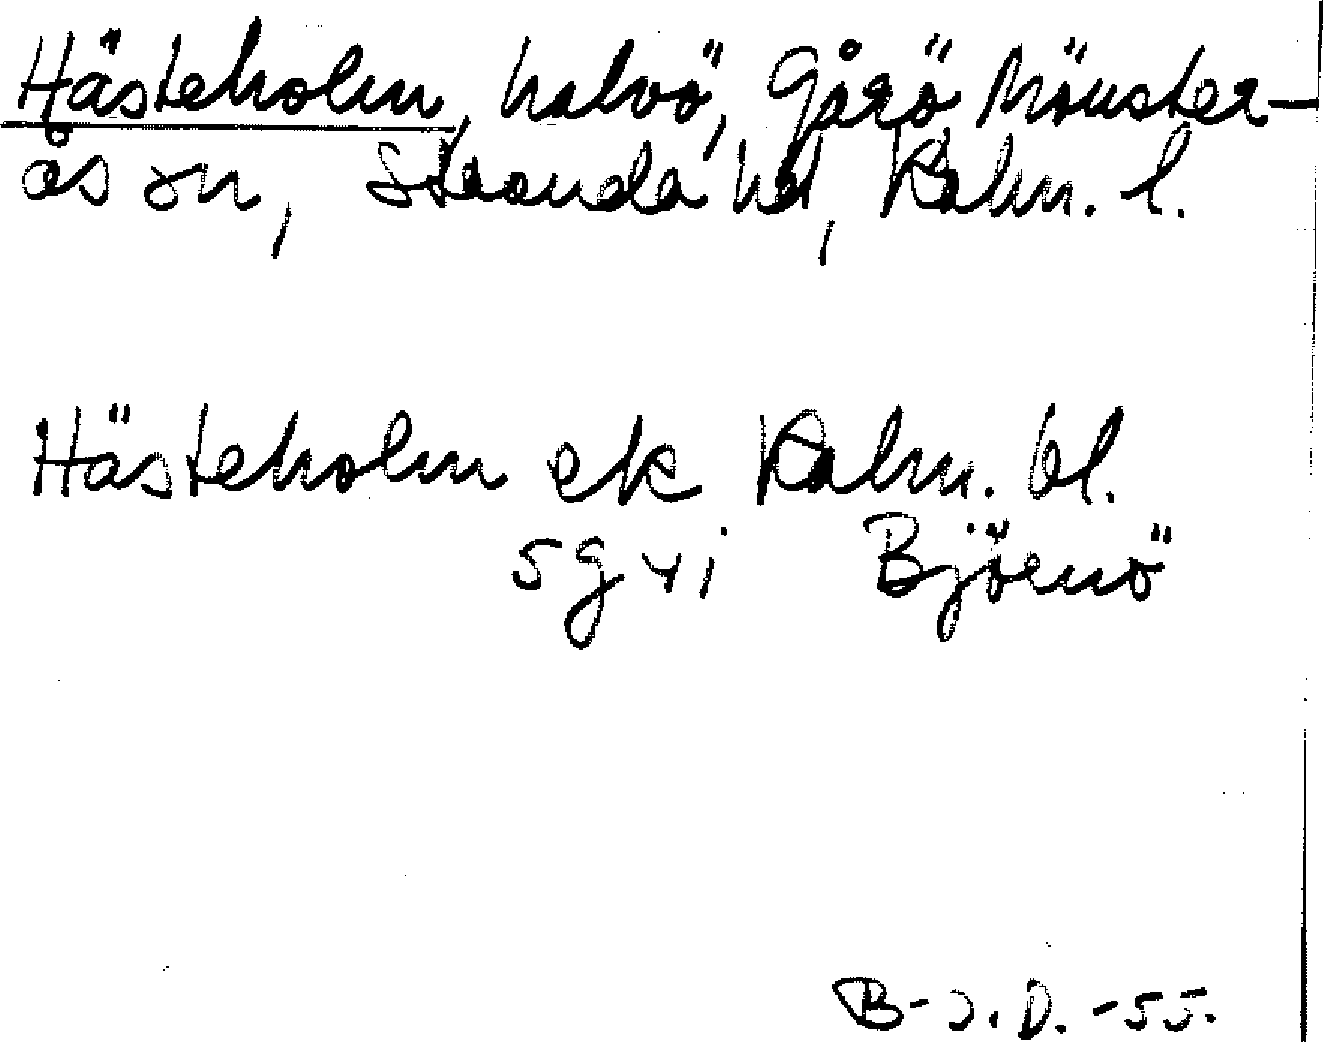 Hästeholm, halvö, Gårö Mönster-
ås sn, Stranda hd, Kalm. l.
Hästeholm ek Kalm. bl.
5g vi Björnö
B-J. D. -55.